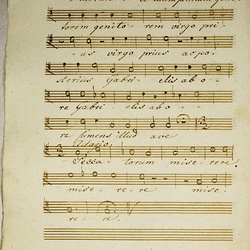 torem genito - rem virgo pri -
us virgo prius ac po -
sterius Gabri - elis ab o -
re Gabri - elis ab o -
re sumens illud ave
Adagio
Pecca - torum mise - re - re
mise - re - re mise -
re - re.